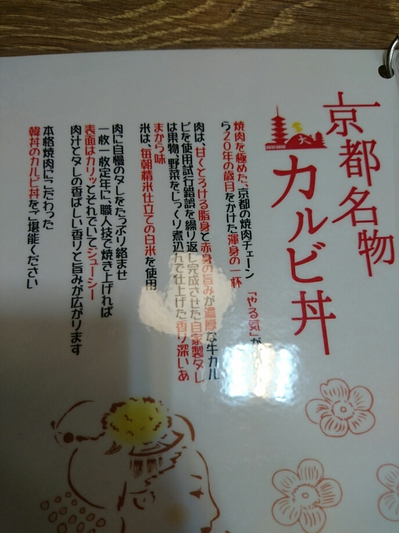 京都名物
カルビ丼
焼肉を極めた、京都の焼肉チェーン「やる気」が
ら20年の歳月をかけた渾身の一杯
肉は、甘くとろける脂身と赤身の旨みが濃厚な牛カル
ビを使用試行錯誤を繰り返し完成させた自家製ダレ
は果物、野菜をじっくり煮込んで仕上げた香り深いあ
まから味
米は、毎朝精米仕立ての白米を使用
肉に自慢のダレをたっぷり絡ませ
一枚一枚定年に、職人技で焼き上げれば
表面はカリッとそれでいてジューシー
肉汁とダレの香ばしい香りと旨みが広がります
本格焼肉にこだわった
韓丼のカルビ丼をご堪能ください